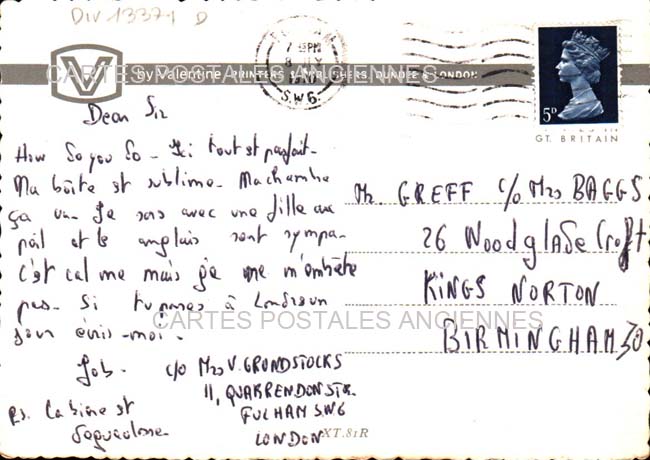 DIV 13371 D
7-15PM
8
S.W.6.
V
by Valentine PRINTERS & PUBLISHERS, DUNDEE & LONDON
CARTES POSTALES ANCIENNES
5D
GT. BRITAIN
Dear Sir
How do you do - Ici tout est parfait -
Ma boîte est sublime - Ma chambre
ça va - Je sors avec une fille au
pair et les anglais sont sympa -
c'est calme mais je ne m'embête
pas - Si tu passes à London un
jour écris-moi -
Job -
c/o Mrs V. GRUNDSTOCKS
11, QUARRENDON STR.
FULHAM SW6
LONDON
P.S. La bière est
dégueulasse
Mr. GREFF c/o Mrs BAGGS
26 Woodglade Croft
KINGS NORTON
BIRMINGHAM 30
CARTES POSTALES ANCIENNES
XT.81R